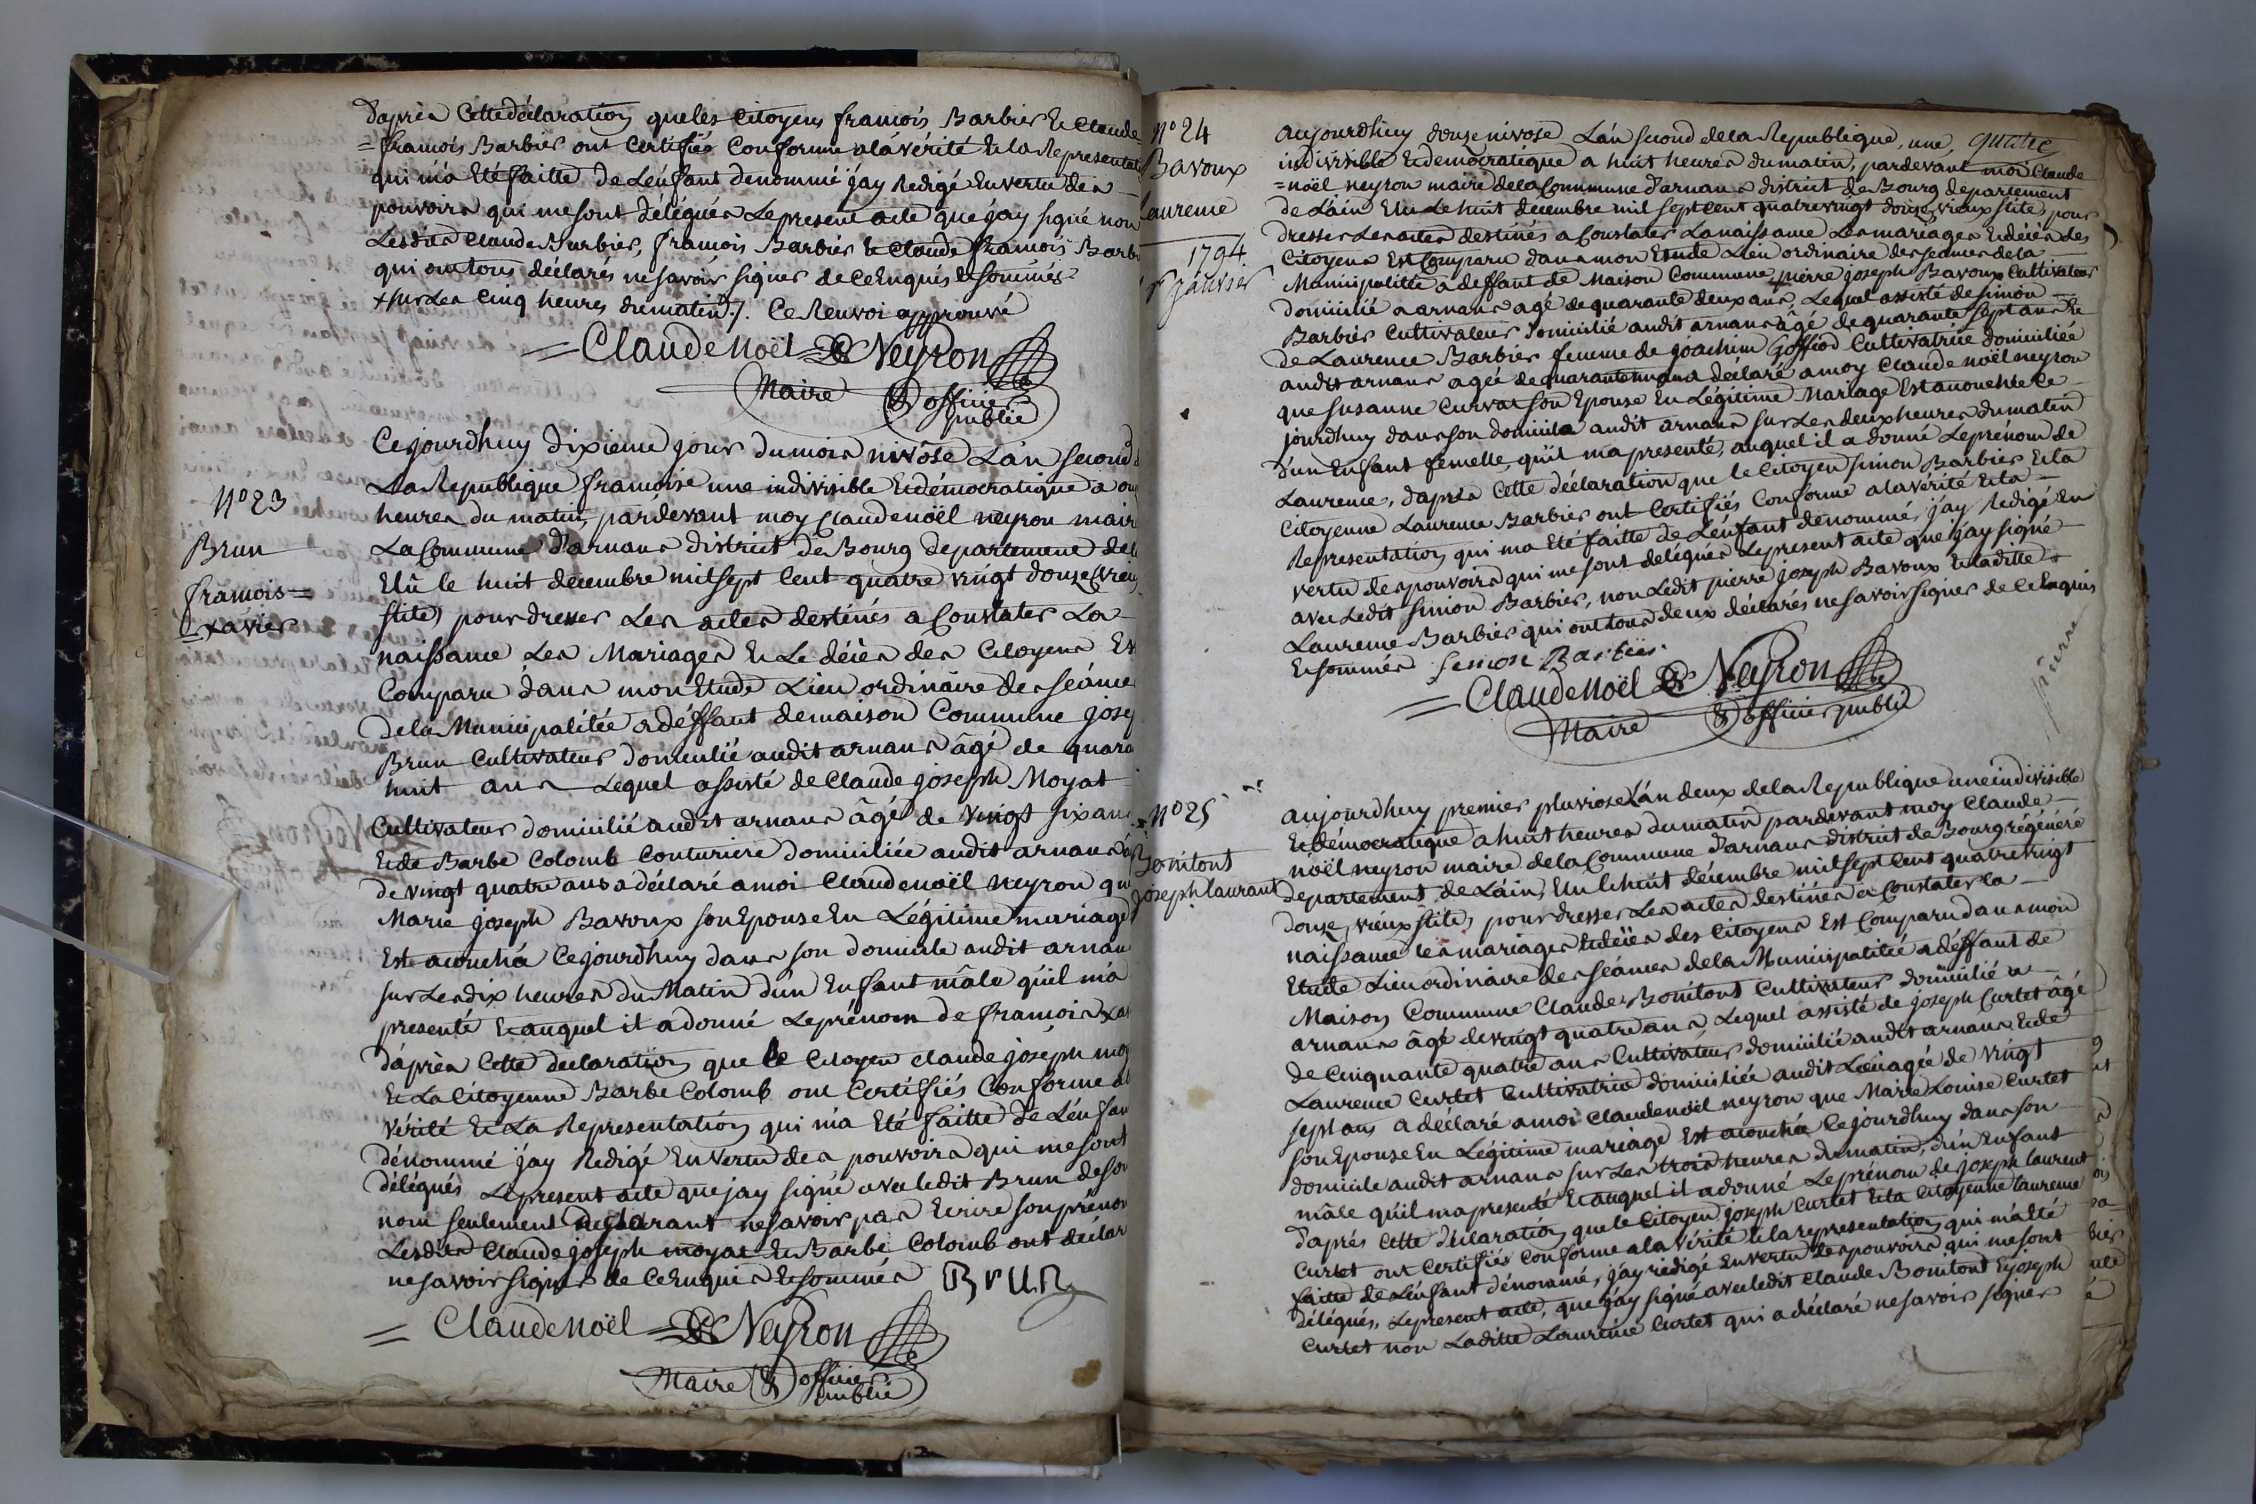 d'après Cette déclaration que les Citoyens françois Barbier Et Claude
= françois Barbier ont Certifiés Conforme a la vérité Et la Representat
qui m'a Eté faitte de L'enfant denommé j'ay Redigé En vertu des
pouvoirs qui me sont délégués Le present acte que j'ay signé non
Lesdits Claude Barbier, françois Barbier Et Claude françois Barbi
qui ont tous déclarés ne savoir signer de ce Enquis Et sommés
+ sur Les Cinq heures du matin ./. Ce Renvoi approuvé
= Claude Noël Neyron
Maire & officier
public
N° 23
Brun
françois =
= xavier
Ce jourdhuy dixieme jour du mois nivôse L'an second d
La Republique françoise une indivisible Et démocratique a on
heures du matin, pardevant moy Claude noël neyron mair
La Commune d'arnans district de Bourg departement de L
Elû le huit decembre mil sept Cent quatre vingt douze (vieu
stite) pour dresser Les actes destinés a Constater La
naissance Les Mariages Et Le décès des Citoyens Est
Comparu dans mon Etude Lieu ordinaire des séances
de la Municipalitée a déffaut de maison Commune jose
Brun Cultivateur domicilié audit arnans âgé de quara
huit ans Lequel assisté de Claude joseph Moyat
Cultivateur domicilié audit arnans âgé de vingt six ans
Et de Barbe Colomb Couturiere domiciliée audit arnans
de vingt quatre ans a déclaré a moi Claude noël neyron qu
Marie joseph Bavoux son Epouse En Légitime mariage
Est acouchée Ce jourdhuy dans son domicile audit arnan
sur Les dix heures du Matin d'un Enfant mâle qu'il m'a
presenté Et auquel il a donné Le prénom de françois xa
D'après Cette declaration que Le Citoyen Claude joseph moy
Et La Citoyenne Barbe Colomb ont Certifiés Conforme a
vérité Et La Representation qui m'a Eté faitte de L'enfan
dénommé j'ay Redigé En vertu des pouvoirs qui me sont
délégués Le present acte que j'ay signé avec ledit Brun de son
nom seulement declarant ne savoir pas Ecrire son prénom
Lesdits Claude joseph moyat Et Barbe Colomb ont déclar
ne savoir signer de ce Enquis Et sommés Brun
= Claude Noël Neyron
Maire & officier
public
N° 24
Bavoux
Laurence
1794.
1er janvier
aujourdhuy douze nivose L'an second de la Republique, une,
indivisible Et democratique a huit heures du matin, pardevant moi Claude
= noël neyron maire de la Commune d'arnans district de Bourg departement
de L'ain Elu Le huit decembre mil sept cent quatre vingt douze, vieux stite, pour
dresser Les actes destinés a Constater La naissance Les mariages Et décès des
Citoyens Est Comparu dans mon Etude Lieu ordinaire des séances de la
Municipalitée a deffaut de Maison Commune, pierre joseph Bavoux Cultivateur
domicilié a arnans agé de quarante deux ans, Lequel assisté de simon
Barbier Cultivateur domicilié audit arnans âgé de quarante sept ans Et
de Laurence Barbier femme de joachim Goffiod Cultivatrice domiciliée
audit arnans agée de quarante un ans a déclaré a moy Claude noël neyron
que Susanne Curvat son Epouse En Légitime Mariage Est acouchée Ce
jourdhuy dans son domicile audit arnans sur Les deux heures du matin
d'un Enfant femelle, qu'il m'a presenté, auquel il a donné Le prénom de
Laurence, d'après Cette déclaration que le Citoyen simon Barbier Et la
Citoyenne Laurence Barbier ont Certifiés Conforme a la vérité Et la
Representation qui m'a Eté faitte de L'enfant denommé, j'ay Redigé En
vertu des pouvoirs qui me sont délégués Le present acte que j'ay signé
avec Ledit simon Barbier, non Ledit pierre joseph Bavoux Et laditte
Laurence Barbier qui ont tous deux déclarés ne savoir signer de ce Enquis
Et sommés Simon Barbier
= Claude Noël Neyron
Maire & officier public
N° 25
Bonitont
joseph laurant
aujourdhuy premier pluviose L'an deux de la Republique une indivisible
Et démocratique a huit heures du matin pardevant moy Claude
noël neyron maire de la Commune d'arnans district de Bourg régénéré
departement de L'ain, Elu le huit décembre mil sept Cent quatre vingt
douze, vieux stite, pour dresser Les actes destinés a Constater la
naissance les mariages Et décès des Citoyens Est Comparu dans mon
Etude Lieu ordinaire des séances de la Municipalitée a déffaut de
Maison Commune Claude Bonitont Cultivateur domicilié a
arnans âgé de vingt quatre ans, Lequel assisté de joseph Curtet âgé
de Cinquante quatre ans Cultivateur domicilié audit arnans Et de
Laurence Curtet Cultivatrice domiciliée audit Lieu agée de vingt
sept ans a déclaré a moi Claude noël neyron que Marie Louise Curtet
son Epouse En Légitime mariage Est acouchée Ce jourdhuy dans son
domicile audit arnans sur Les trois heures du matin, d'un Enfant
mâle qu'il m'a presenté Et auquel il a donné Le prénom de joseph laurent
d'aprés Cette déclaration que le Citoyen joseph Curtet Et la Citoyenne laurence
Curtet ont Certifiés Conforme a la vérité Et la representation qui m'a Eté
faitte de L'enfant dénommé, j'ay redigé En vertu des pouvoirs qui me sont
délégués, Le present acte, que j'ay signé avec ledit Claude Bonitont Et joseph
Curtet non Laditte Laurence Curtet qui a déclaré ne savoir signer